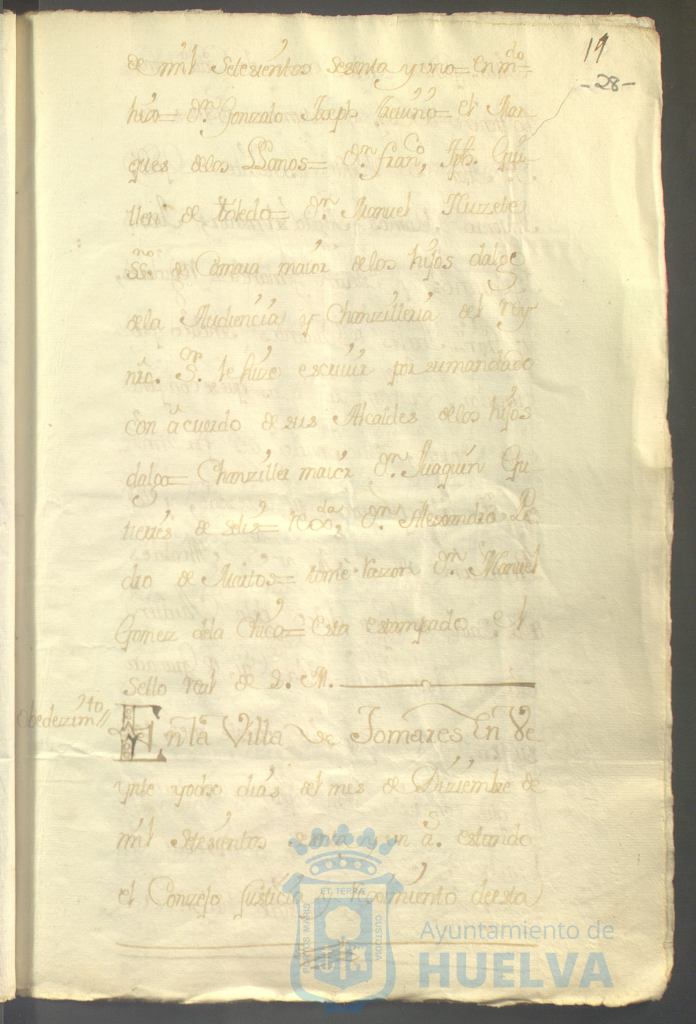 19
-28-
de mil Setesientos sesenta y uno= En m.do
ques delos Llanos= Dn. Fran.co, Jph. Gui-
llen de Toledo= Dn. Manuel
SS.no de Camara maior delos hijos dalgo
dela Audiencia y Chanzilleria del Rey
nro. Sr. le hize escriuir por su mandado
Con acuerdo de sus Alcaldes delos hijos
dalgo= Chanziller maior Dn. Juaquin Gu-
tierres de Solis= Dn. Alexandro
de Martos= tome razon Dn. Manuel
Gomez dela Chica= Esta estampado el
Sello real de S. M.
Obedezim.to //
En la Villa de Tomares En Ve
ynte y ocho dias del mes de Diziembre de
mil Setesientos sesenta y un a.s estando
el Conzejo Justicia y Regimiento de esta
ET TERRAE
PORTUS MARIS
CUSTODIA
Ayuntamiento de
HUELVA